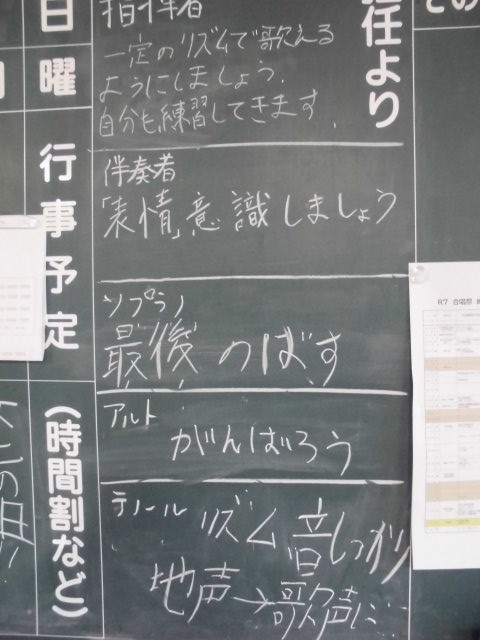 日
曜
行事予定
(時間割など)
任より
指揮者
一定のリズムで歌える
ようにしましょう.
自分も練習してきます.
伴奏者
「表情」意識しましょう
ソプラノ
最後のばす
アルト
がんばろう
テノール
リズム 音しっかり
地声→歌声に…
R7 合唱祭